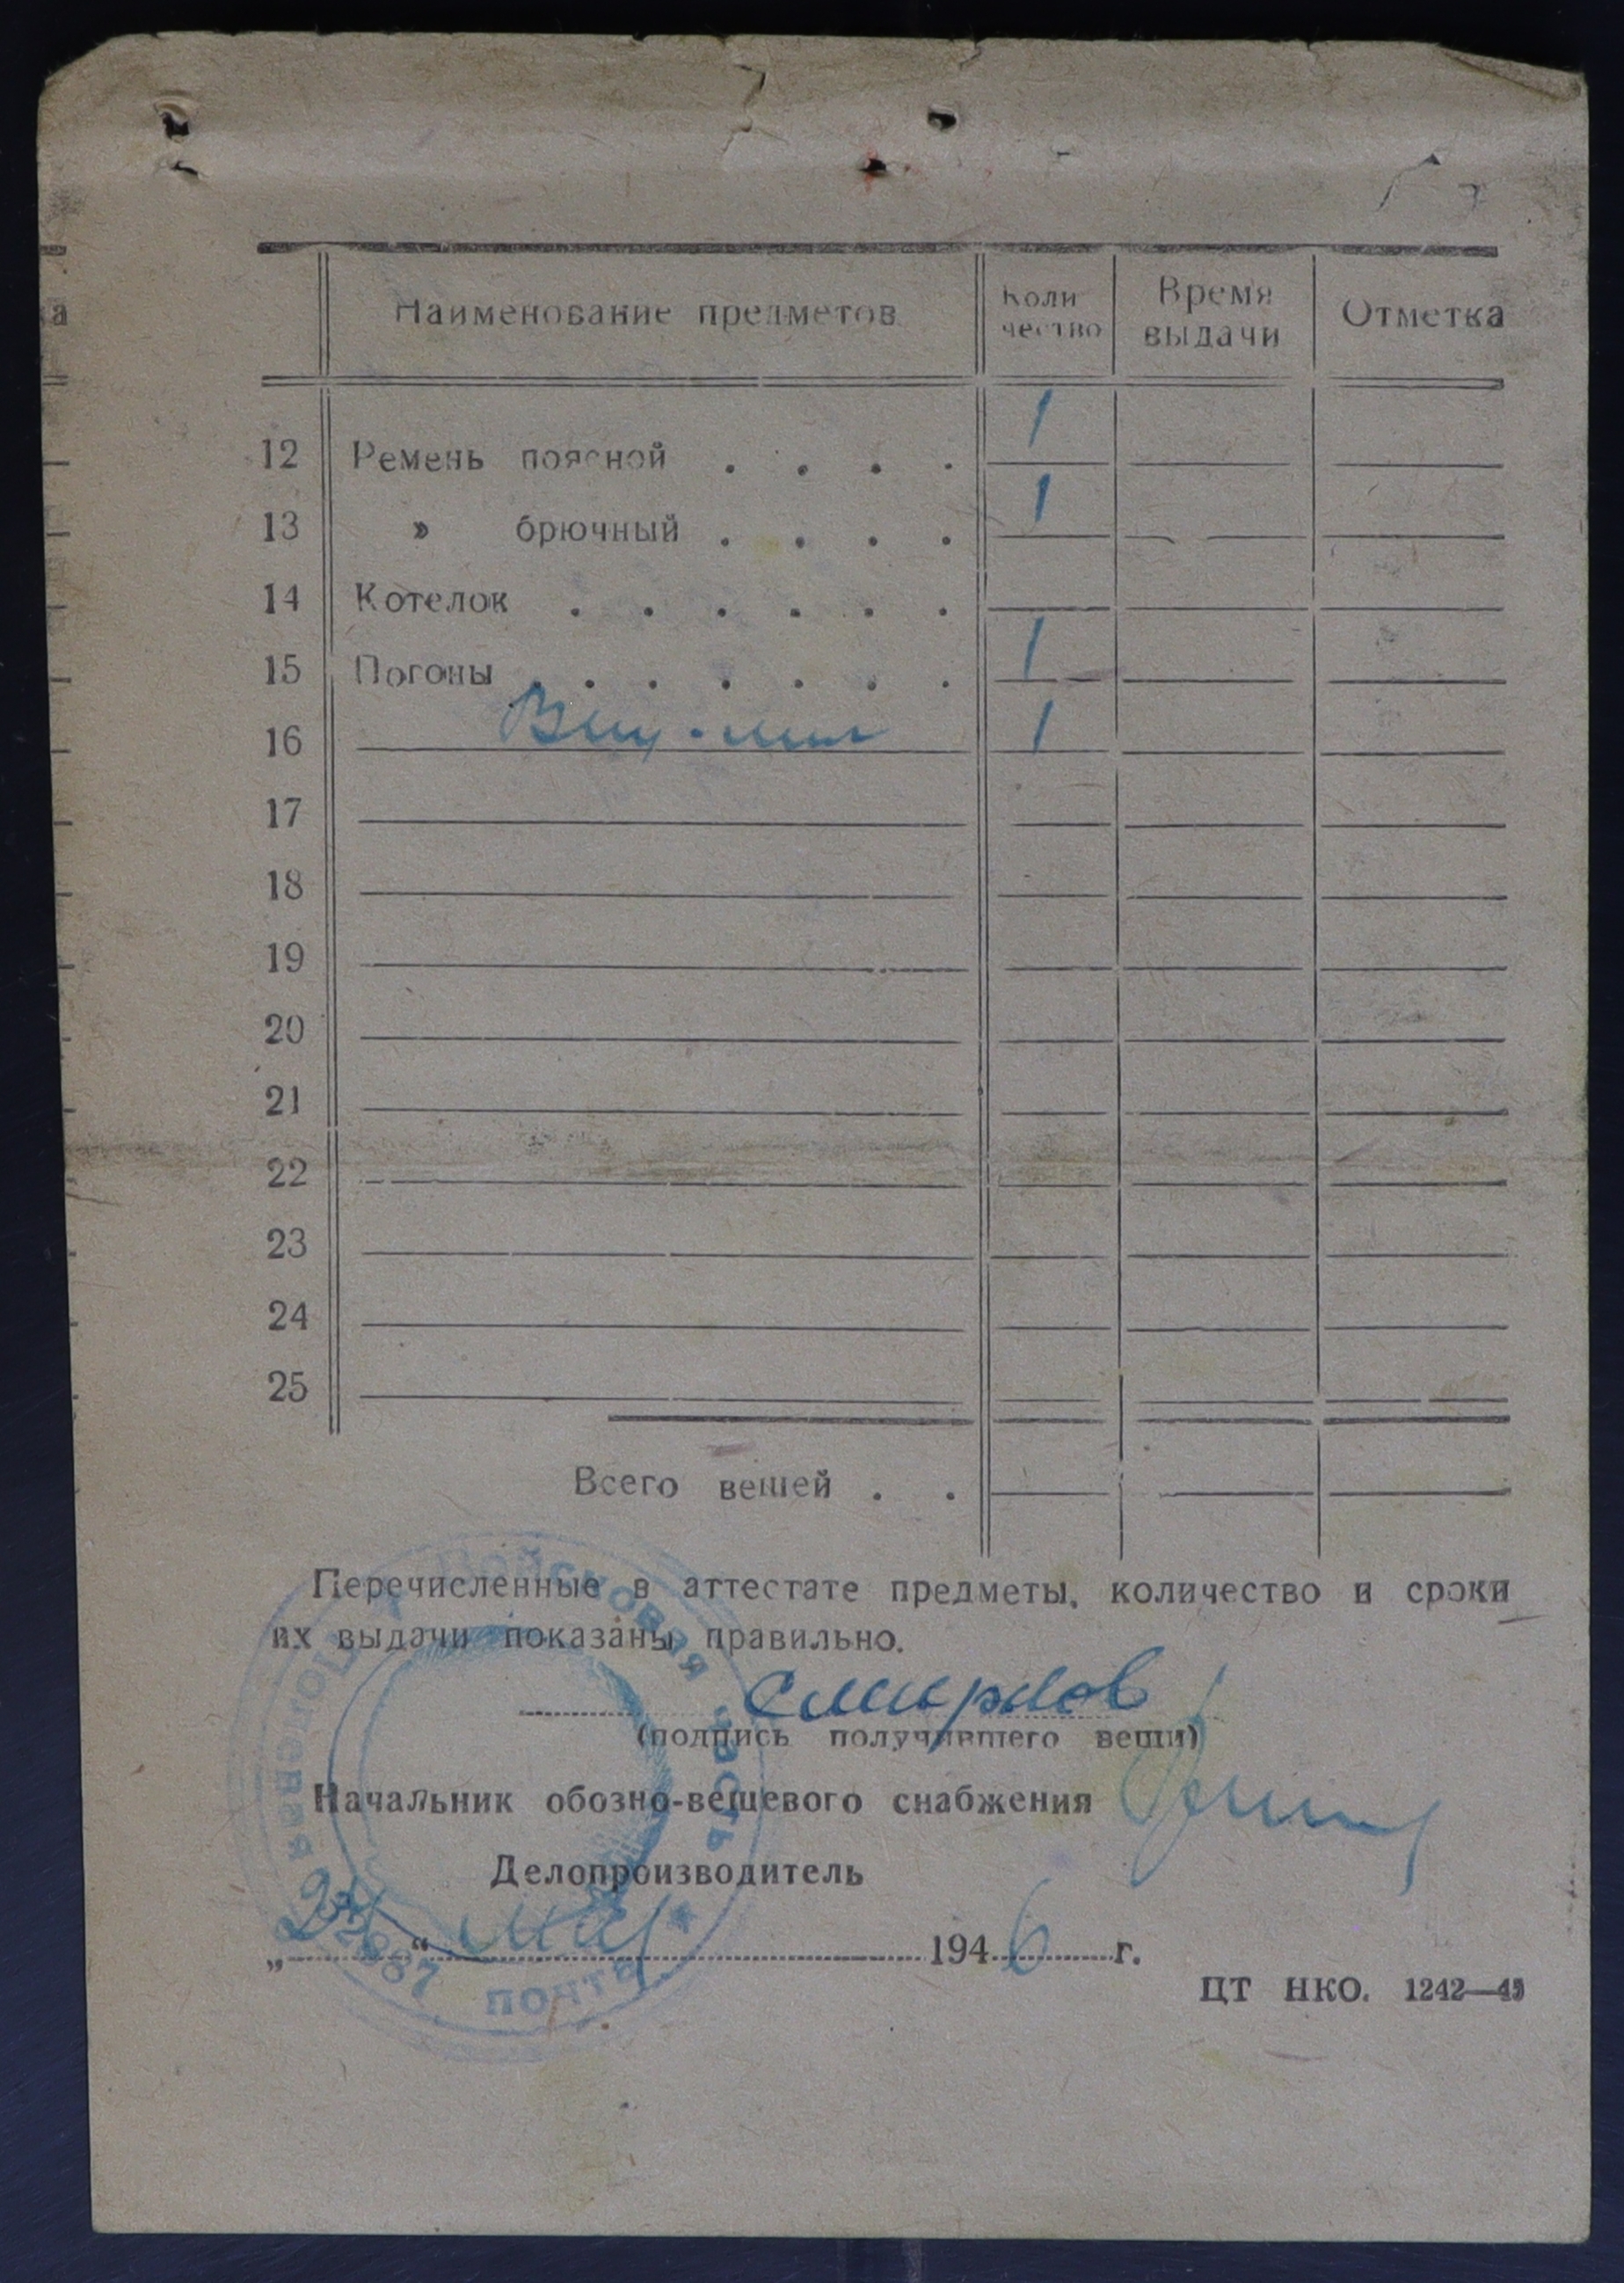 а
Наименование предметов
Коли
чество
Время
выдачи
Отметка
1
12 Ремень поясной . . . .
1
13 » брючный . . . .
14 Котелок . . . . . .
15 Погоны . . . . . . 1
16 Вещ. меш 1
17
18
19
20
21
22
23
24
25
Всего вещей . .
Перечисленные в аттестате предметы, количество и сроки
их выдачи показаны правильно.
Смирнов
(подпись получившего вещи)
Начальник обозно-вещевого снабжения
Делопроизводитель
„ “ мая 1946 г.
ЦТ НКО. 1242—45
Войсковая часть
Полевая почта